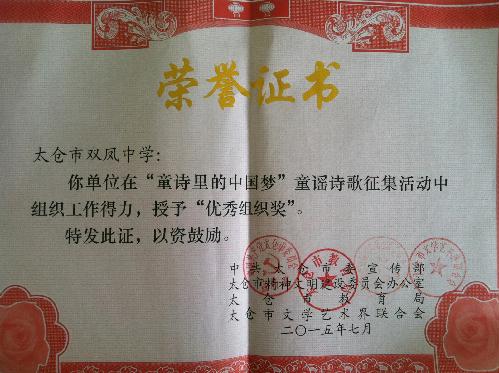 荣誉证书
太仓市双凤中学：
你单位在“童诗里的中国梦”童谣诗歌征集活动中
组织工作得力，授予“优秀组织奖”。
特发此证，以资鼓励。
中共太仓市委宣传部
太仓市精神文明建设委员会办公室
太仓市教育局
太仓市文学艺术界联合会
二〇一五年七月